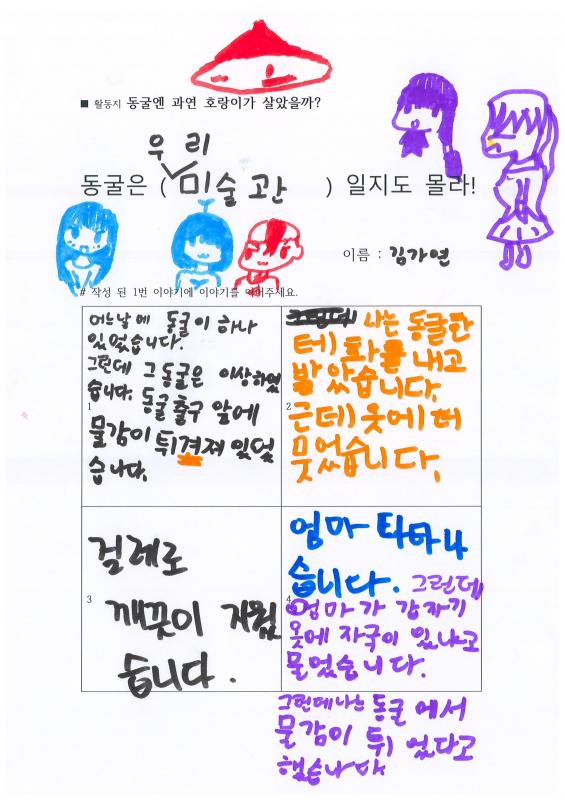 ■ 활동지 동굴엔 과연 호랑이가 살았을까?
우리
동굴은 ( 미술고관 ) 일지도 몰라!
이름 : 김가연
# 작성 된 1번 이야기에 이야기를 이어주세요.
어느날에 동굴이 하나
있었습니다.
그런데 그 동굴은 이상하였
습니다. 동굴출구 앞에
1
물감이 튀겨져 있덨
습니다.
나는 동굴한
테 화를 내고
발았습니다.
2
근데 옷에 떠
뭇었습니다.
걸레로
3
깨끗이 지웠
습니다.
엄마 타타나
습니다. 그런데
4
엄마가 갑자기
옷에 자국이 있냐고
물었습니다.
그런데 나는 동굴에서
물감이 튀었다고
했습니다